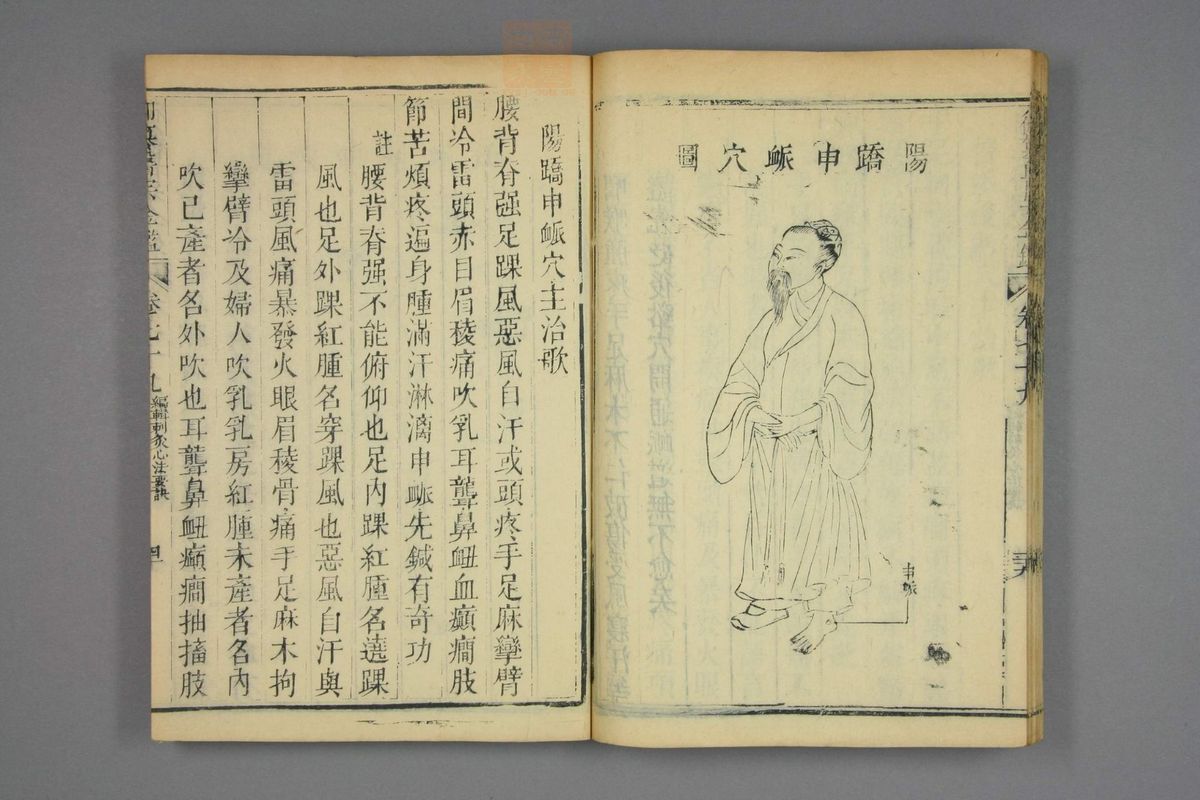 陽蹻申脈穴圖
申脈
陽蹻申脈穴主治歌
腰背脊强足踝風惡風自汗或頭疼手足麻攣臂
間冷雷頭赤目眉稜痛吹乳耳聾鼻衄血癲癇肢
節苦煩疼遍身腫滿汗淋漓申脈先鍼有奇功
註
腰背脊强不能俯仰也足内踝紅腫名遶踝
風也足外踝紅腫名穿踝風也惡風自汗與
雷頭風痛暴發火眼眉稜骨痛手足麻木拘
攣臂冷及婦人吹乳乳房紅腫未產者名内
吹已產者名外吹也耳聾鼻衄癲癇抽搐肢
卷七十九
編輯刺灸心法要訣